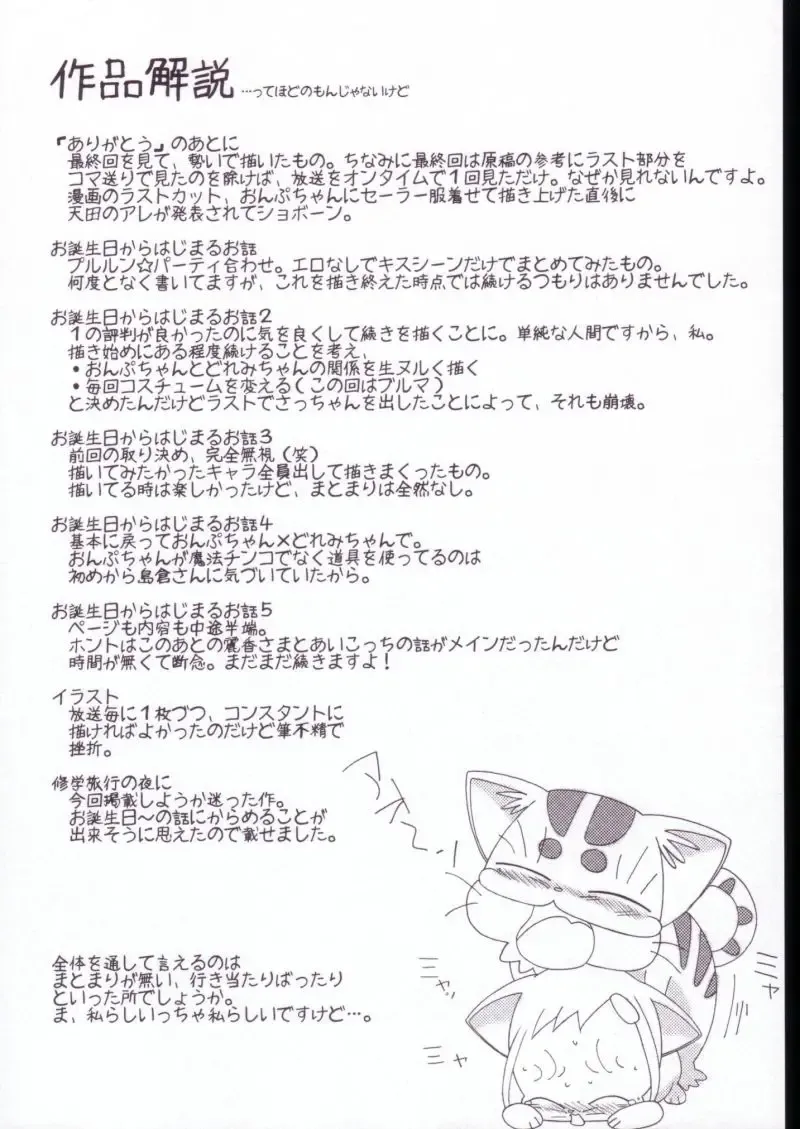 作品解説 …ってほどのもんじゃないけど
『ありがとう』のあとに
最終回を見て、勢いで描いたもの。ちなみに最終回は原稿の参考にラスト部分を
コマ送りで見たのを除けば、放送をオンタイムで1回見ただけ。なぜか見れないんですよ。
漫画のラストカット、おんぷちゃんにセーラー服着せて描き上げた直後に
天田のアレが発表されてショボーン。
お誕生日からはじまるお話
プルルン☆パーティ合わせ。エロなしでキスシーンだけでまとめてみたもの。
何度となく書いてますが、これを描き終えた時点では続けるつもりはありませんでした。
お誕生日からはじまるお話2
1の評判が良かったのに気を良くして続きを描くことに。単純な人間ですから、私。
描き始めにある程度続けることを考え、
・おんぷちゃんとどれみちゃんの関係を生ヌルく描く
・毎回コスチュームを変える(この回はブルマ)
と決めたんだけどラストでさっちゃんを出したことによって、それも崩壊。
お誕生日からはじまるお話3
前回の取り決め、完全無視(笑)
描いてみたかったキャラ全員出して描きまくったもの。
描いてる時は楽しかったけど、まとまりは全然なし。
お誕生日からはじまるお話4
基本に戻っておんぷちゃん×どれみちゃんで。
おんぷちゃんが魔法チンコでなく道具を使ってるのは
初めから島倉さんに気づいていたから。
お誕生日からはじまるお話5
ページも内容も中途半端。
ホントはこのあとの麗香さまとあいこっちの話がメインだったんだけど
時間が無くて断念。まだまだ続きますよ!
イラスト
放送毎に1枚づつ、コンスタントに
描ければよかったのだけど筆不精で
挫折。
修学旅行の夜に
今回掲載しようか迷った作。
お誕生日～の話にからめることが
出来そうに思えたので載せました。
全体を通して言えるのは
まとまりが無い、行き当たりばったり
といった所でしょうか。
ま、私らしいっちゃ私らしいですけど…。
ミャッ
ミャ
ミャ